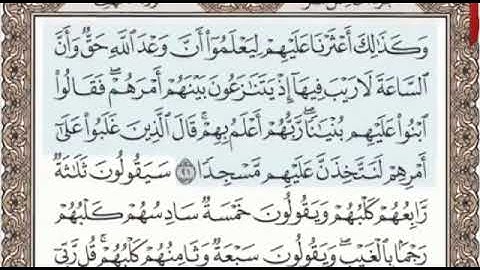 وَكَذَٰلِكَ أَعْثَرْنَا عَلَيْهِمْ لِيَعْلَمُوٓا۟ أَنَّ وَعْدَ ٱللَّهِ حَقٌّ وَأَنَّ
ٱلسَّاعَةَ لَا رَيْبَ فِيهَآ إِذْ يَتَنَٰزَعُونَ بَيْنَهُمْ أَمْرَهُمْ ۖ فَقَالُوا۟
ٱبْنُوا۟ عَلَيْهِم بُنْيَٰنًا ۖ رَّبُّهُمْ أَعْلَمُ بِهِمْ ۚ قَالَ ٱلَّذِينَ غَلَبُوا۟ عَلَىٰٓ
أَمْرِهِمْ لَنَتَّخِذَنَّ عَلَيْهِم مَّسْجِدًا ٢١ سَيَقُولُونَ ثَلَٰثَةٌ
رَّابِعُهُمْ كَلْبُهُمْ وَيَقُولُونَ خَمْسَةٌ سَادِسُهُمْ كَلْبُهُمْ
رَجْمًۢا بِٱلْغَيْبِ ۖ وَيَقُولُونَ سَبْعَةٌ وَثَامِنُهُمْ كَلْبُهُمْ ۚ قُل رَّبِّىٓ